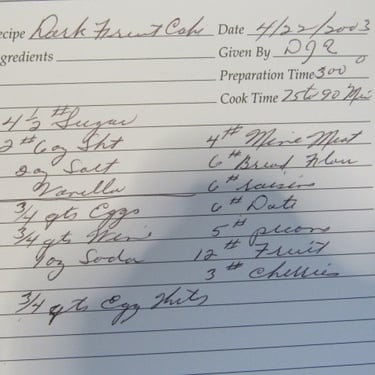 ecipe Dark Fruit Cake Date 4/22/2003
ngredients Given By DJQ
Preparation Time 300°
Cook Time 75 to 90 Min
4 ½ # Sugar
2 # 6 oz Sht
2 oz Salt
Vanilla
¾ qts Eggs
¾ qts Wine
1 oz Soda
¾ qts Egg Whts
4 # Mince Meat
6 # Bread Flour
6 # raisins
6 # Dats
5 # pecans
12 # Fruit
3 # Cherries